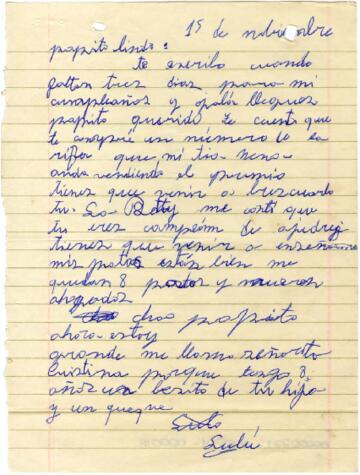 15 de nobienbre
papito lindo:
te escribo cuando
faltan tres dias para mi
cumpleaños y ojala llegues
papito querido te cuento que
te conpré un número de la
rifa que mi tia nena
anda vendiendo el premio
tienes que venir a buscarlo
tu. La Betty me contó que
tu eres campeon de ajedrez
tienes que venir a enseñarme
mis patos están bien me
quedan 8 patos y
ahogados
chao papito
ahora estoy
grande me llamo señorita
Cristina porque tengo 8
años un besito de tu hija
y un queque
Lulú